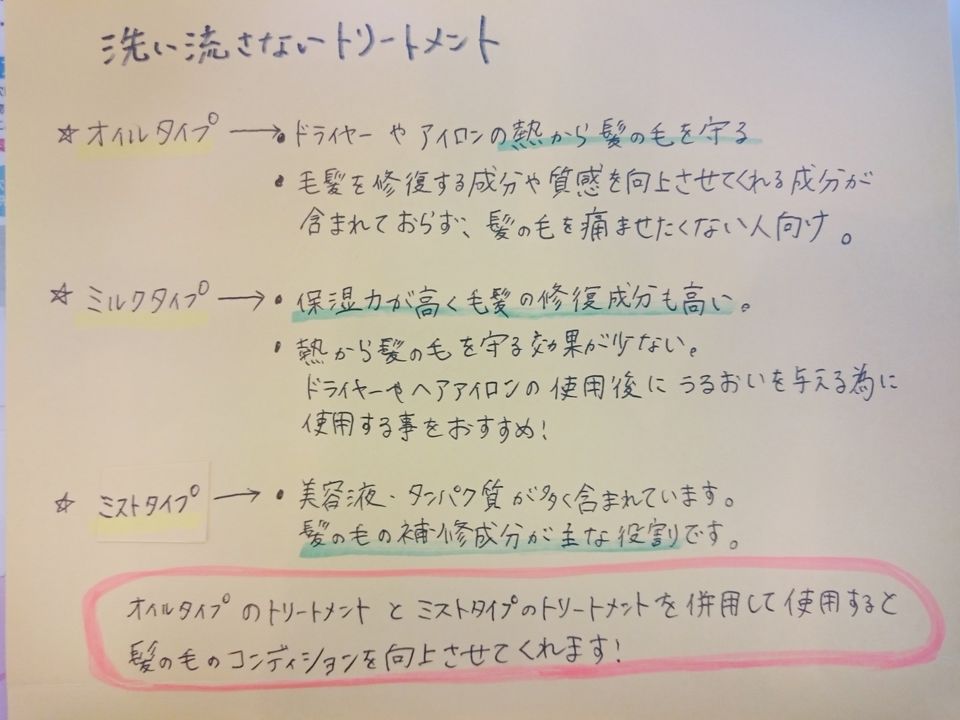 洗い流さないトリートメント
☆オイルタイプ → ・ドライヤーや アイロンの熱から髪の毛を守る
・毛髪を修復する成分や質感を向上させてくれる成分が
含まれておらず、髪の毛を痛ませたくない人向け。
☆ミルクタイプ → ・保湿力が高く毛髪の修復成分も高い。
・熱から髪の毛を守る効果が少ない。
ドライヤーやヘアアイロンの使用後にうるおいを与える為に
使用する事をおすすめ!
☆ミストタイプ → ・美容液・タンパク質が多く含まれています。
髪の毛の補修成分が主な役割です。
オイルタイプのトリートメントとミストタイプのトリートメントを併用して使用すると
髪の毛のコンディションを向上させてくれます!